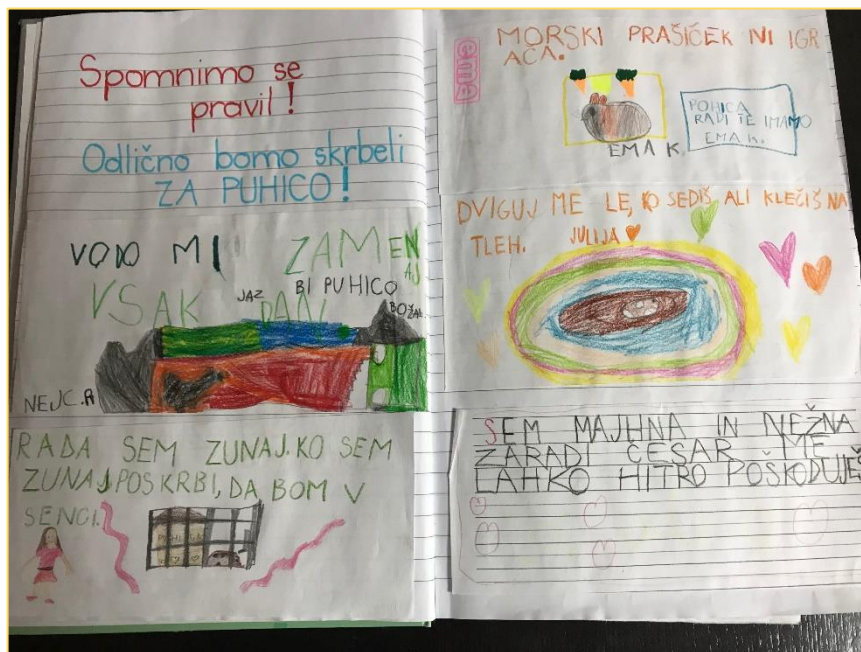 Spomnimo se
pravil!
Odlično bomo skrbeli
ZA PUHICO!
VODO MI ZAMENJAJ
VSAK DAN
JAZ BI PUHICO
BOŽAL
NEJC.R
RADA SEM ZUNAJ.KO SEM
ZUNAJ POSKRBI, DA BOM V
SENCI.
ema
MORSKI PRAŠIČEK NI IGR
AČA.
EMA K.
POHICA
RADI TE IMAMO
EMA K.
DVIGUJ ME LE, KO SEDIŠ ALI KLEČIŠ NA
TLEH. JULIJA
SEM MAJHNA IN NEŽNA
ZARADI ČESAR ME
LAHKO HITRO POŠKODUJEŠ